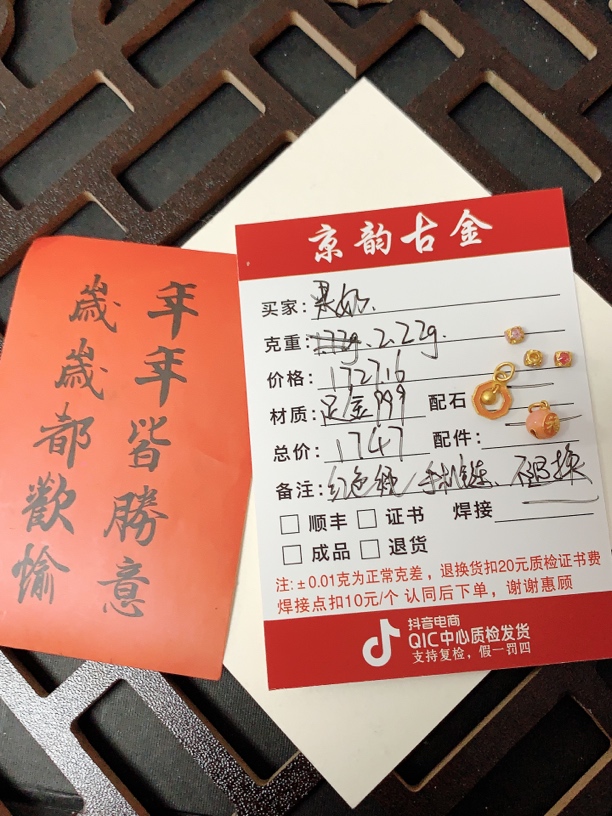 年年皆勝意
歲歲都歡愉
京韵古金
买家:果奶
克重: 2.22g
价格: 1727.16
材质:足金999 配石
总价: 1747 配件:
备注:红色绳 手机链、不退换
顺丰 证书 焊接
成品 退货
注:±0.01克为正常克差,退换货扣20元质检证书费
焊接点扣10元/个 认同后下单,谢谢惠顾
抖音电商
QIC中心质检发货
支持复检,假一罚四